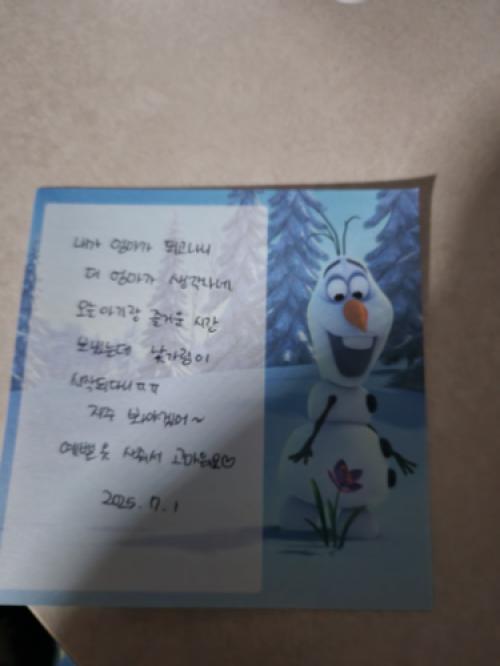 내가 엄마가 되고나니
더 엄마가 생각나네
오늘 아기랑 즐거운 시간
보냈는데 낯가림이
시작되다니ㅠㅠ
자주 봐야겠어~
예쁜 옷 사줘서 고마워요♡
2025. 7. 1